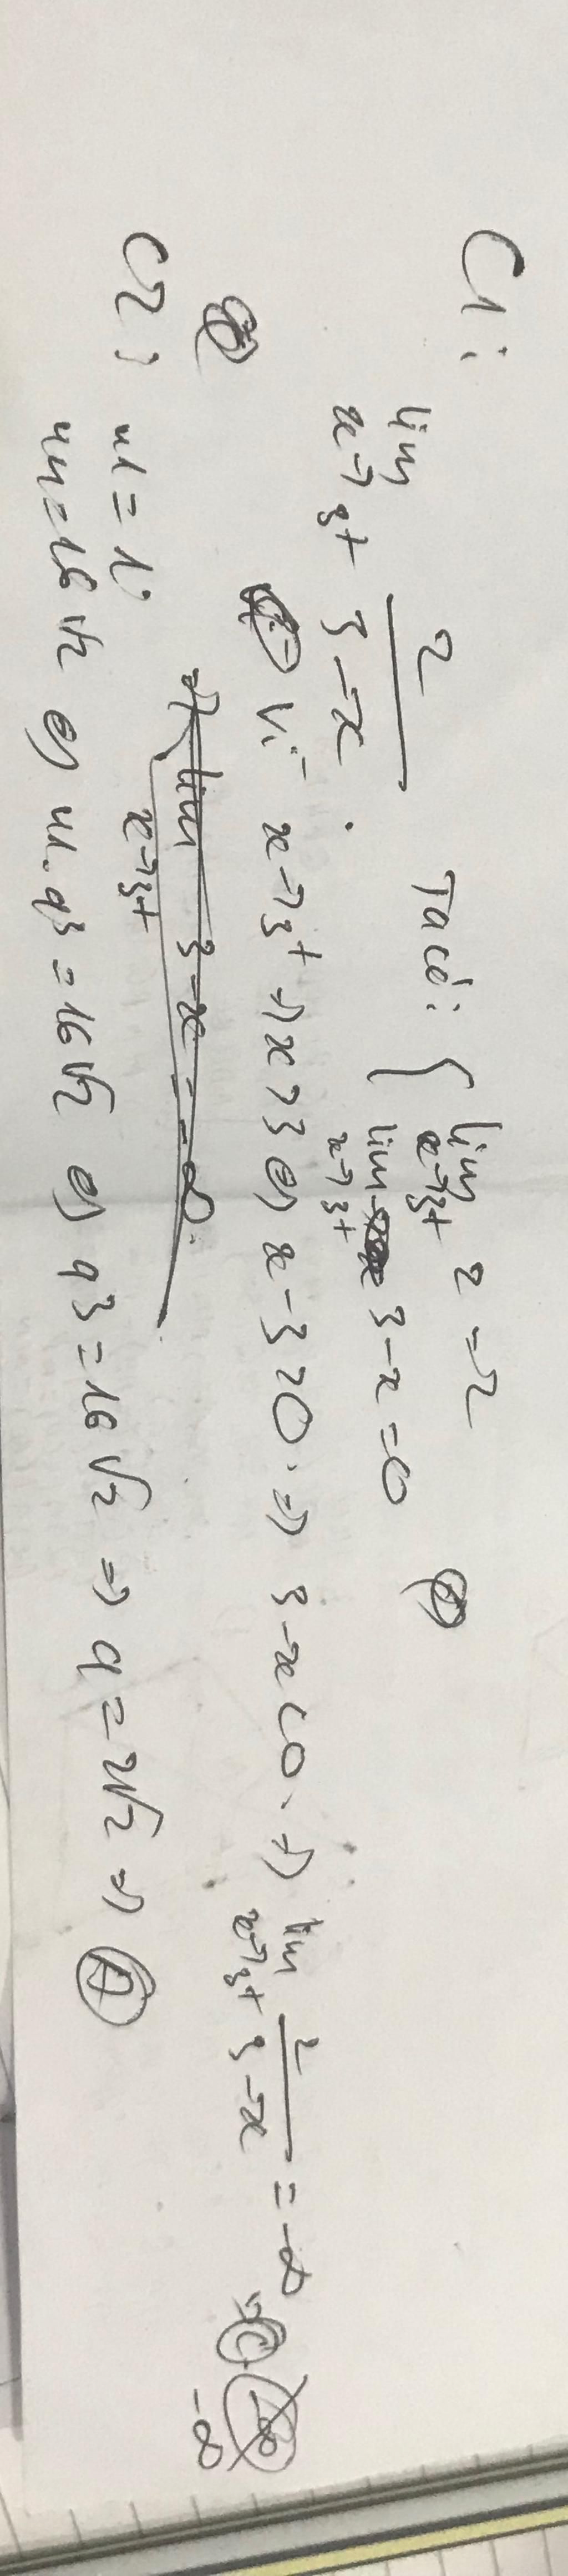 C1:
lim x→3+ 2/(3-x) . Ta có: { lim x→3+ 2 = 2
lim x→3+ 3-x = 0
Vì x→3+ → x>3 ⇔ x-3>0. ⇒ 3-x<0. → lim x→3+ 2/(3-x) = -∞
-∞
→ lim x→3+ 3-x = -∞.
C2: u1 = 1;
u4 = 16√2 ⇔ u1.q3 = 16√2 ⇔ q3 = 16√2 ⇒ q = 2√2 ⇒ A